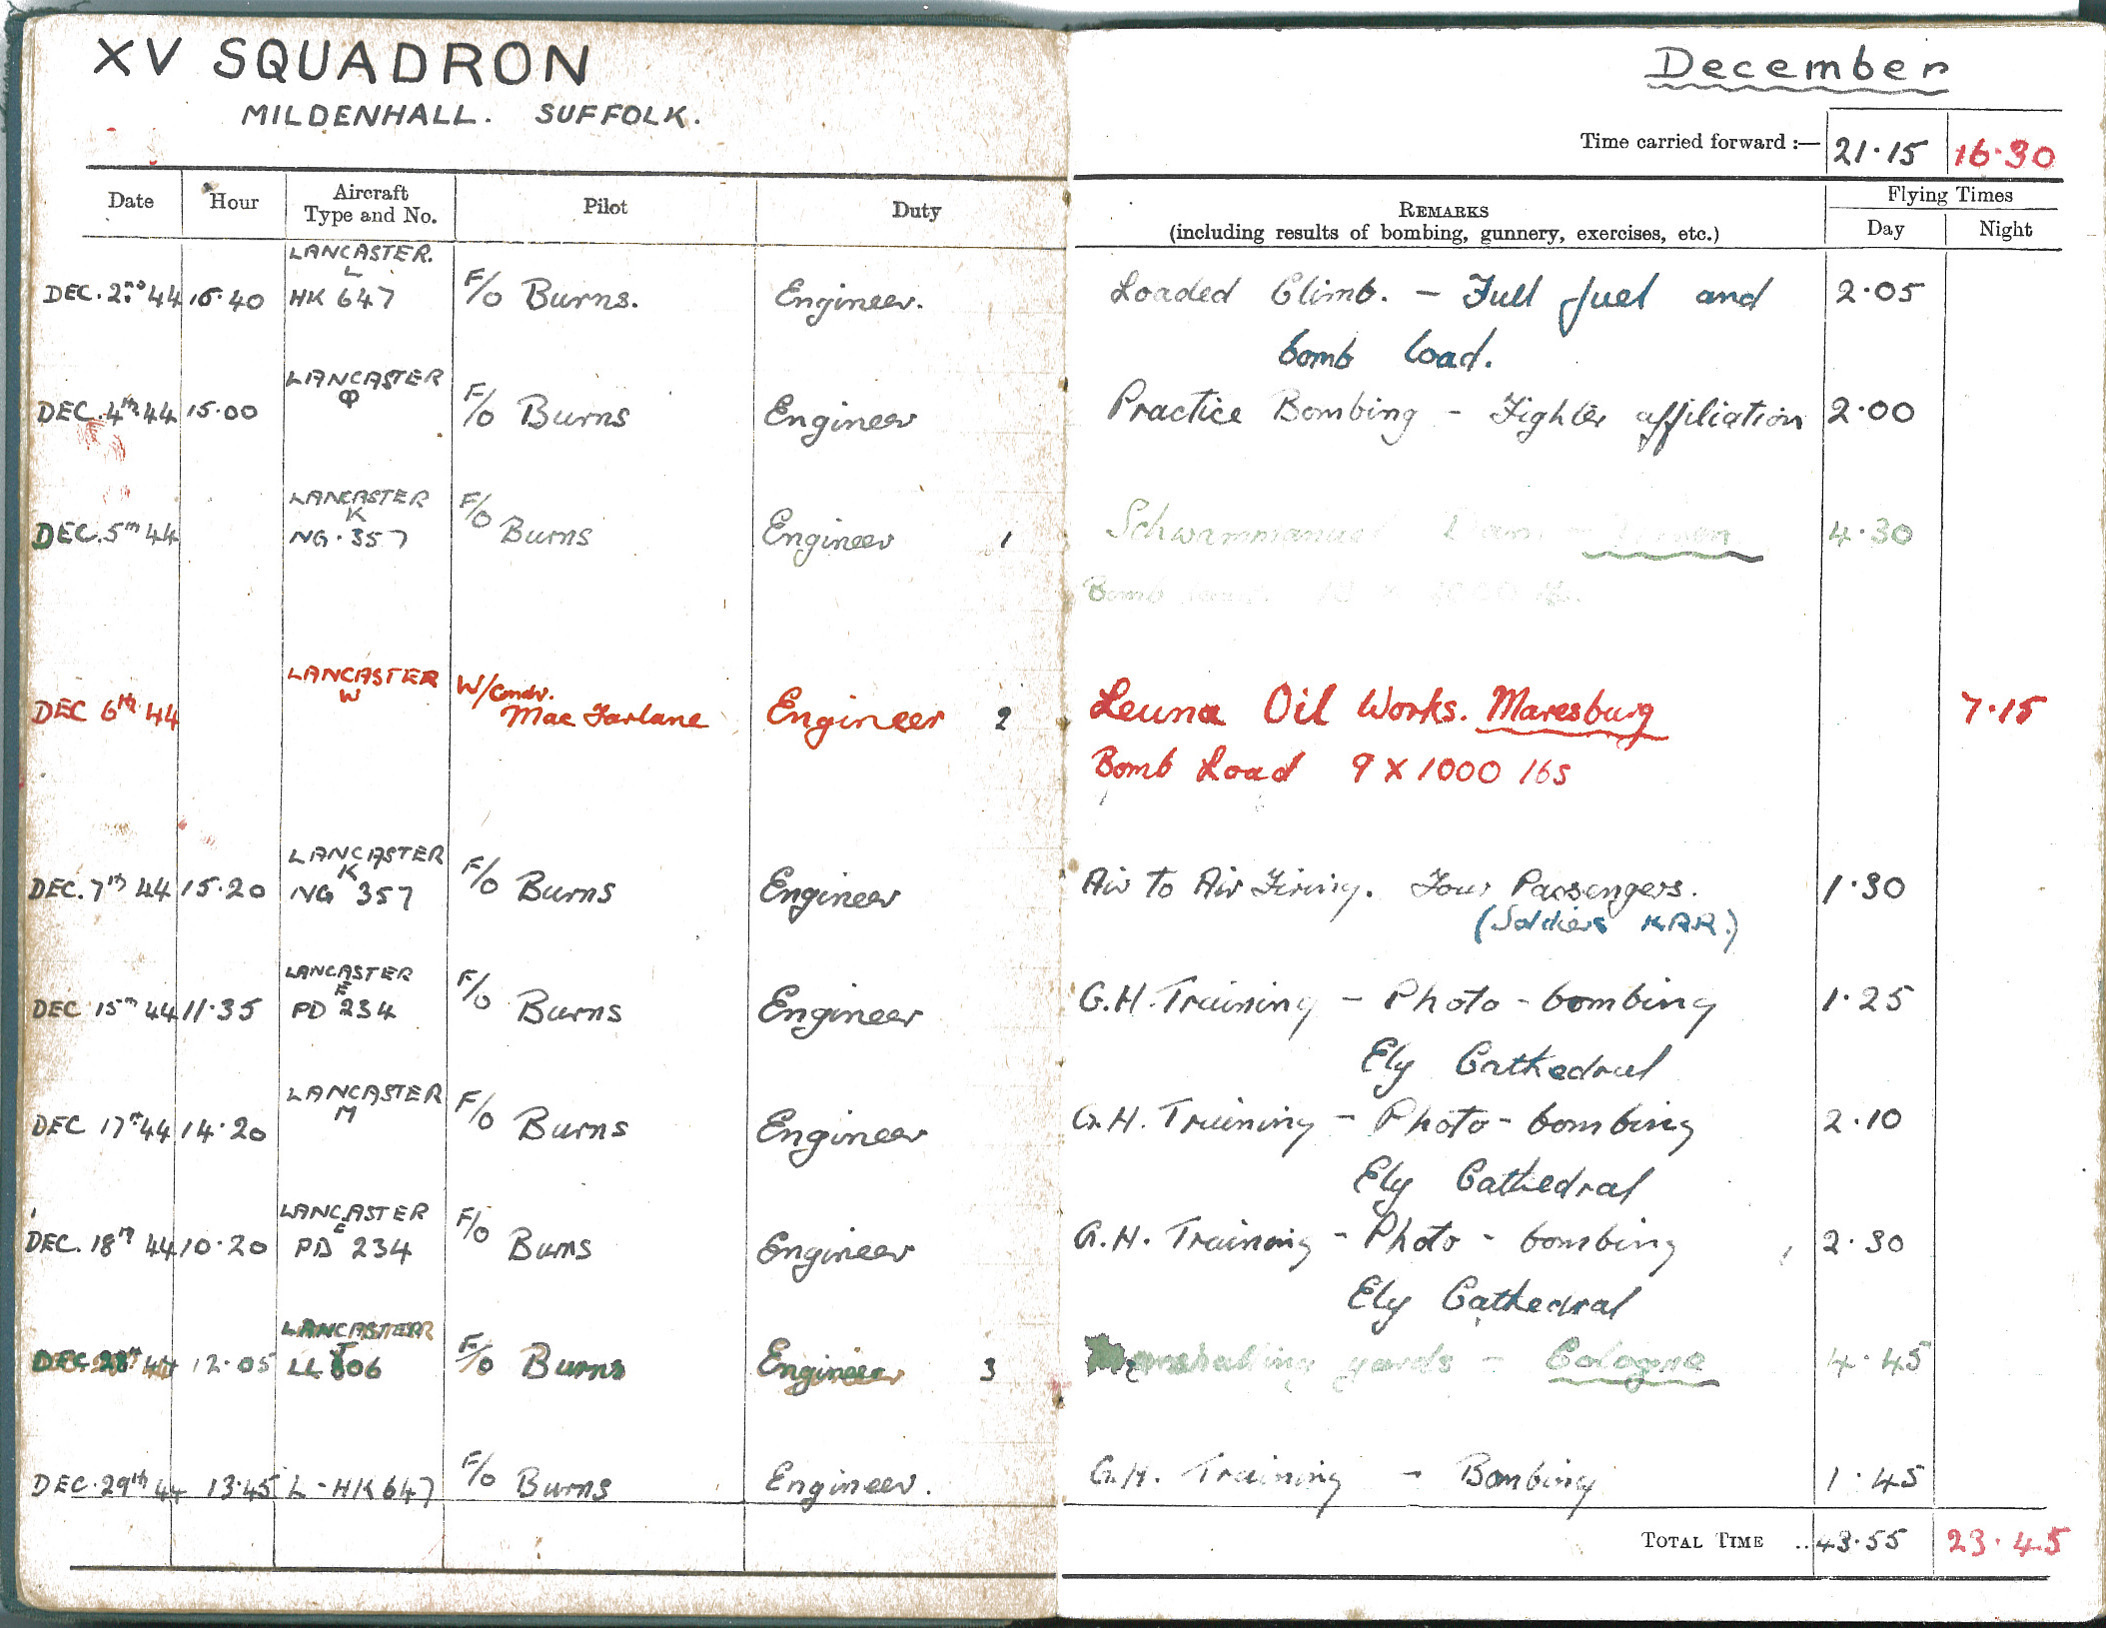 XV SQUADRON
MILDENHALL. SUFFOLK.
December
Time carried forward :— 21·15 16·30
Date Hour Aircraft Type and No. Pilot Duty REMARKS (including results of bombing, gunnery, exercises, etc.) Flying Times Day Night
LANCASTER.
L
DEC. 2nd 44 16·40 HK 647 F/O Burns. Engineer. Loaded Climb. — Full fuel and 2·05
bomb load.
LANCASTER
Q
DEC. 4th 44 15·00 F/O Burns Engineer Practice Bombing - Fighter affiliation 2·00
LANCASTER
K
DEC. 5th 44 NG·357 F/O Burns Engineer 1 4·30
Bomb
LANCASTER
W
DEC 6th 44 W/Cmdr. Mac Farlane Engineer 2 Leuna Oil Works. Maresburg 7·15
Bomb Load 9 X 1000 lbs
LANCASTER
K
DEC. 7th 44 15·20 NG 357 F/O Burns Engineer Air to Air Firing. Four Passengers. 1·30
(Soldiers K.R.R.)
LANCASTER
E
DEC 15th 44 11·35 PD 234 F/O Burns Engineer G.H. Training - Photo - bombing 1·25
Ely Cathedral
LANCASTER
M
DEC 17th 44 14·20 F/O Burns Engineer G.H. Training - Photo - bombing 2·10
Ely Cathedral
LANCASTER
E
DEC. 18th 44 10·20 PD 234 F/O Burns Engineer G.H. Training - Photo - bombing 2·30
Ely Cathedral
LANCASTER
J
DEC 28th 44 12·05 LL 806 F/O Burns Engineer 3 Marshalling yards - Cologne 4·45
DEC. 29th 44 13·45 L - HK 647 F/O Burns Engineer. G.H. Training - Bombing 1·45
TOTAL TIME .. 43·55 23·45